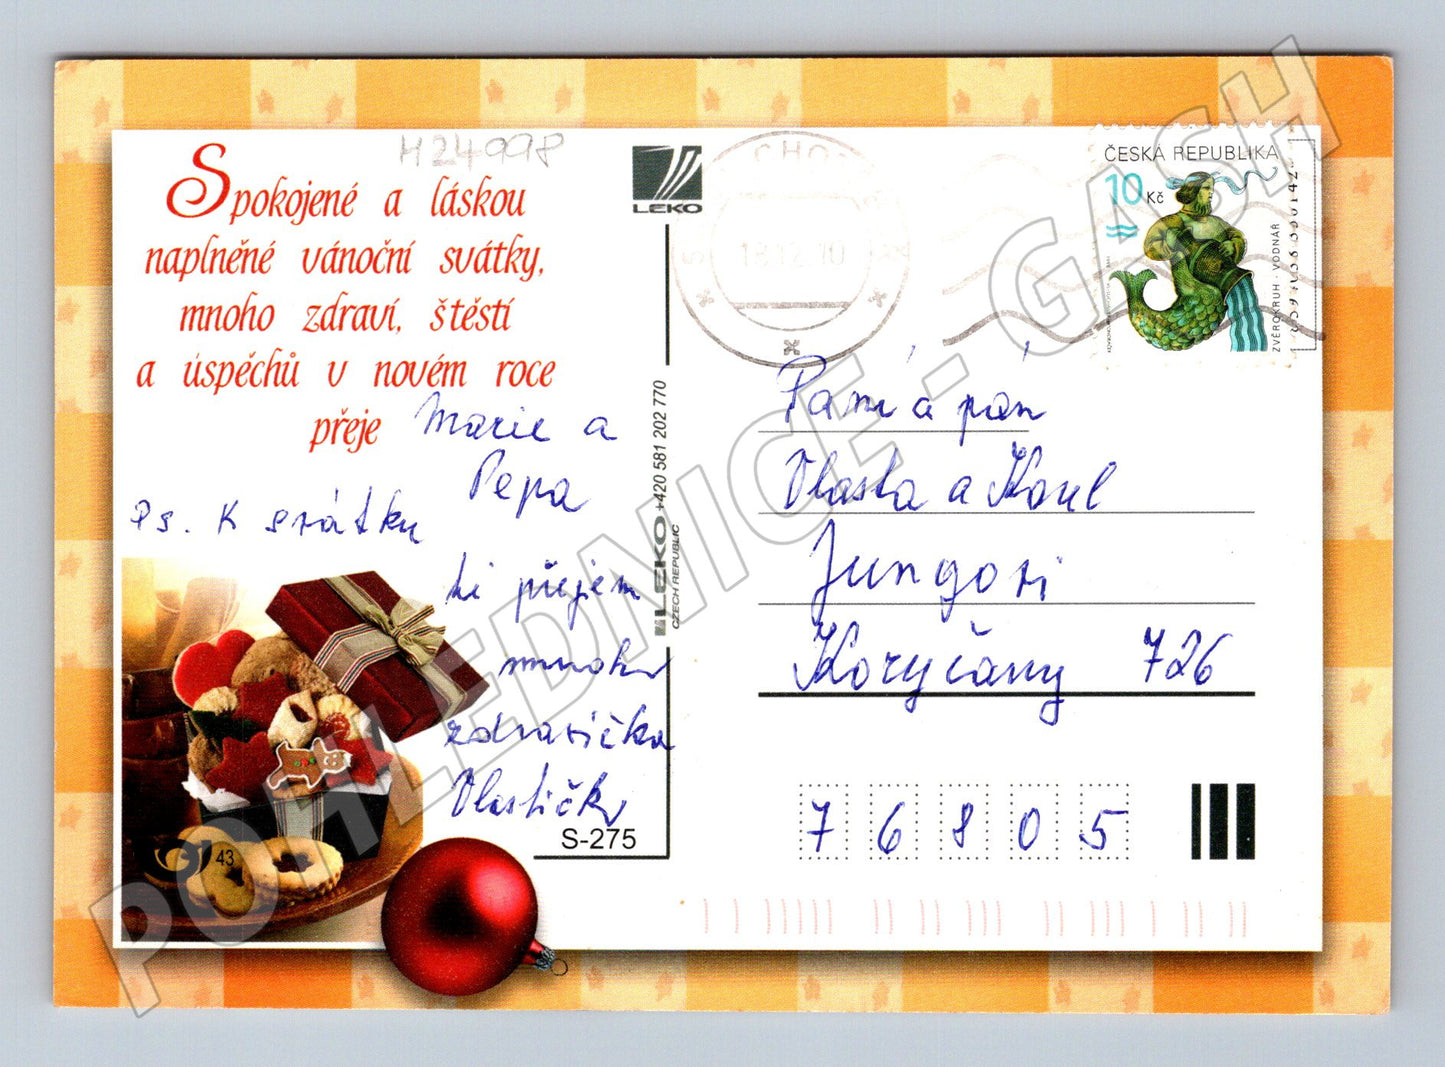 H24998
Spokojené a láskou
naplněné vánoční svátky,
mnoho zdraví, štěstí
a úspěchů v novém roce
přeje Marie a
Pepa
Ps. K svátku
ti přejem
mnoho
zdravíčka
Vlastičko
43
S-275
LEKO
+420 581 202 770
LEKO
CZECH REPUBLIC
18.12.10
ČESKÁ REPUBLIKA
10 Kč
ZVĚROKRUH - VODNÁŘ
Paní a pán
Vlasta a Karel
Jungovi
Koryčany 726
76805
POHLEDNICE - GASH